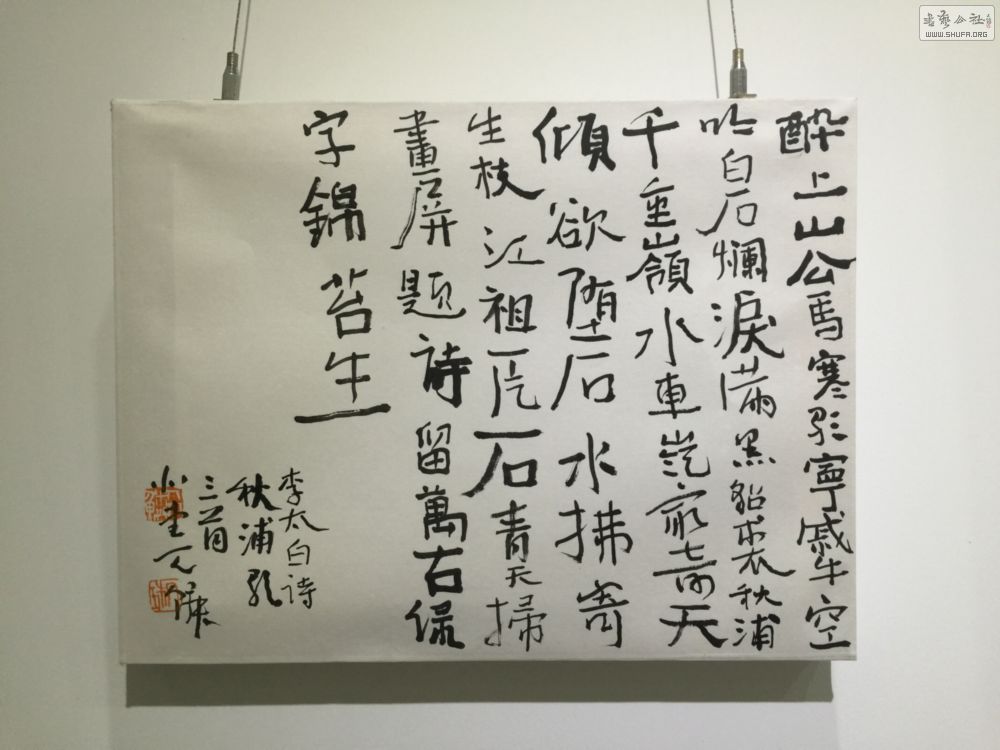 醉上山公馬寒歌寧戚牛空
吟白石爛淚滿黑貂裘秋浦
千重嶺水車嶺最奇天
傾欲堕石水拂寄
生枝江祖一片石青天掃
畫屏題詩留萬古綠
字錦苔生
李太白詩
秋浦歌
三首
書藝公社
WWW.SHUFA.ORG